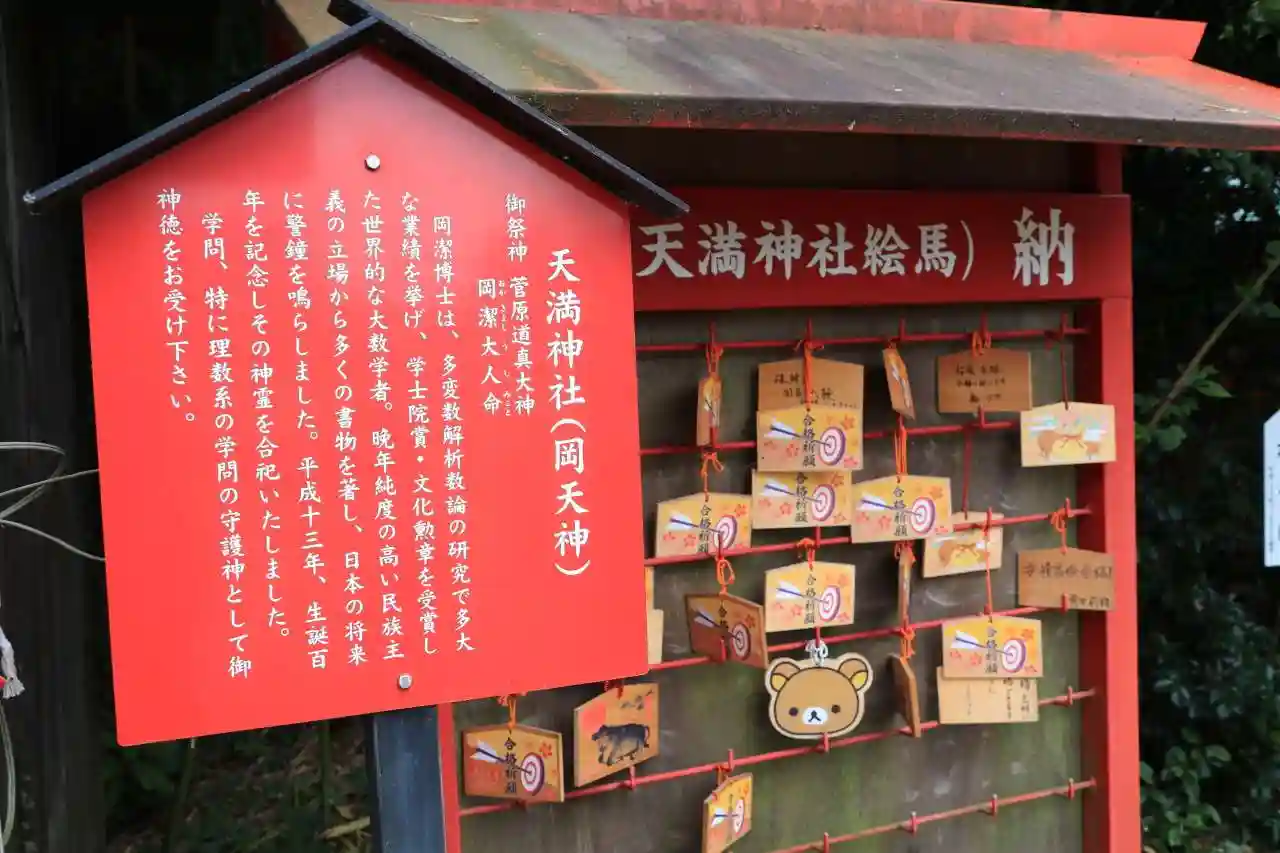 天満神社(岡天神)
御祭神 菅原道真大神
岡潔大人命
おかきよしうしのみこと
岡潔博士は、多変数解析数論の研究で多大
な業績を挙げ、学士院賞・文化勲章を受賞し
た世界的な大数学者。晩年純度の高い民族主
義の立場から多くの書物を著し、日本の将来
に警鐘を鳴らしました。平成十三年、生誕百
年を記念しその神霊を合祀いたしました。
学問、特に理数系の学問の守護神として御
神徳をお受け下さい。
天満神社絵馬)納
合格祈願
合格祈願
合格祈願
合格祈願
合格祈願
合格祈願
合格祈願
合格祈願